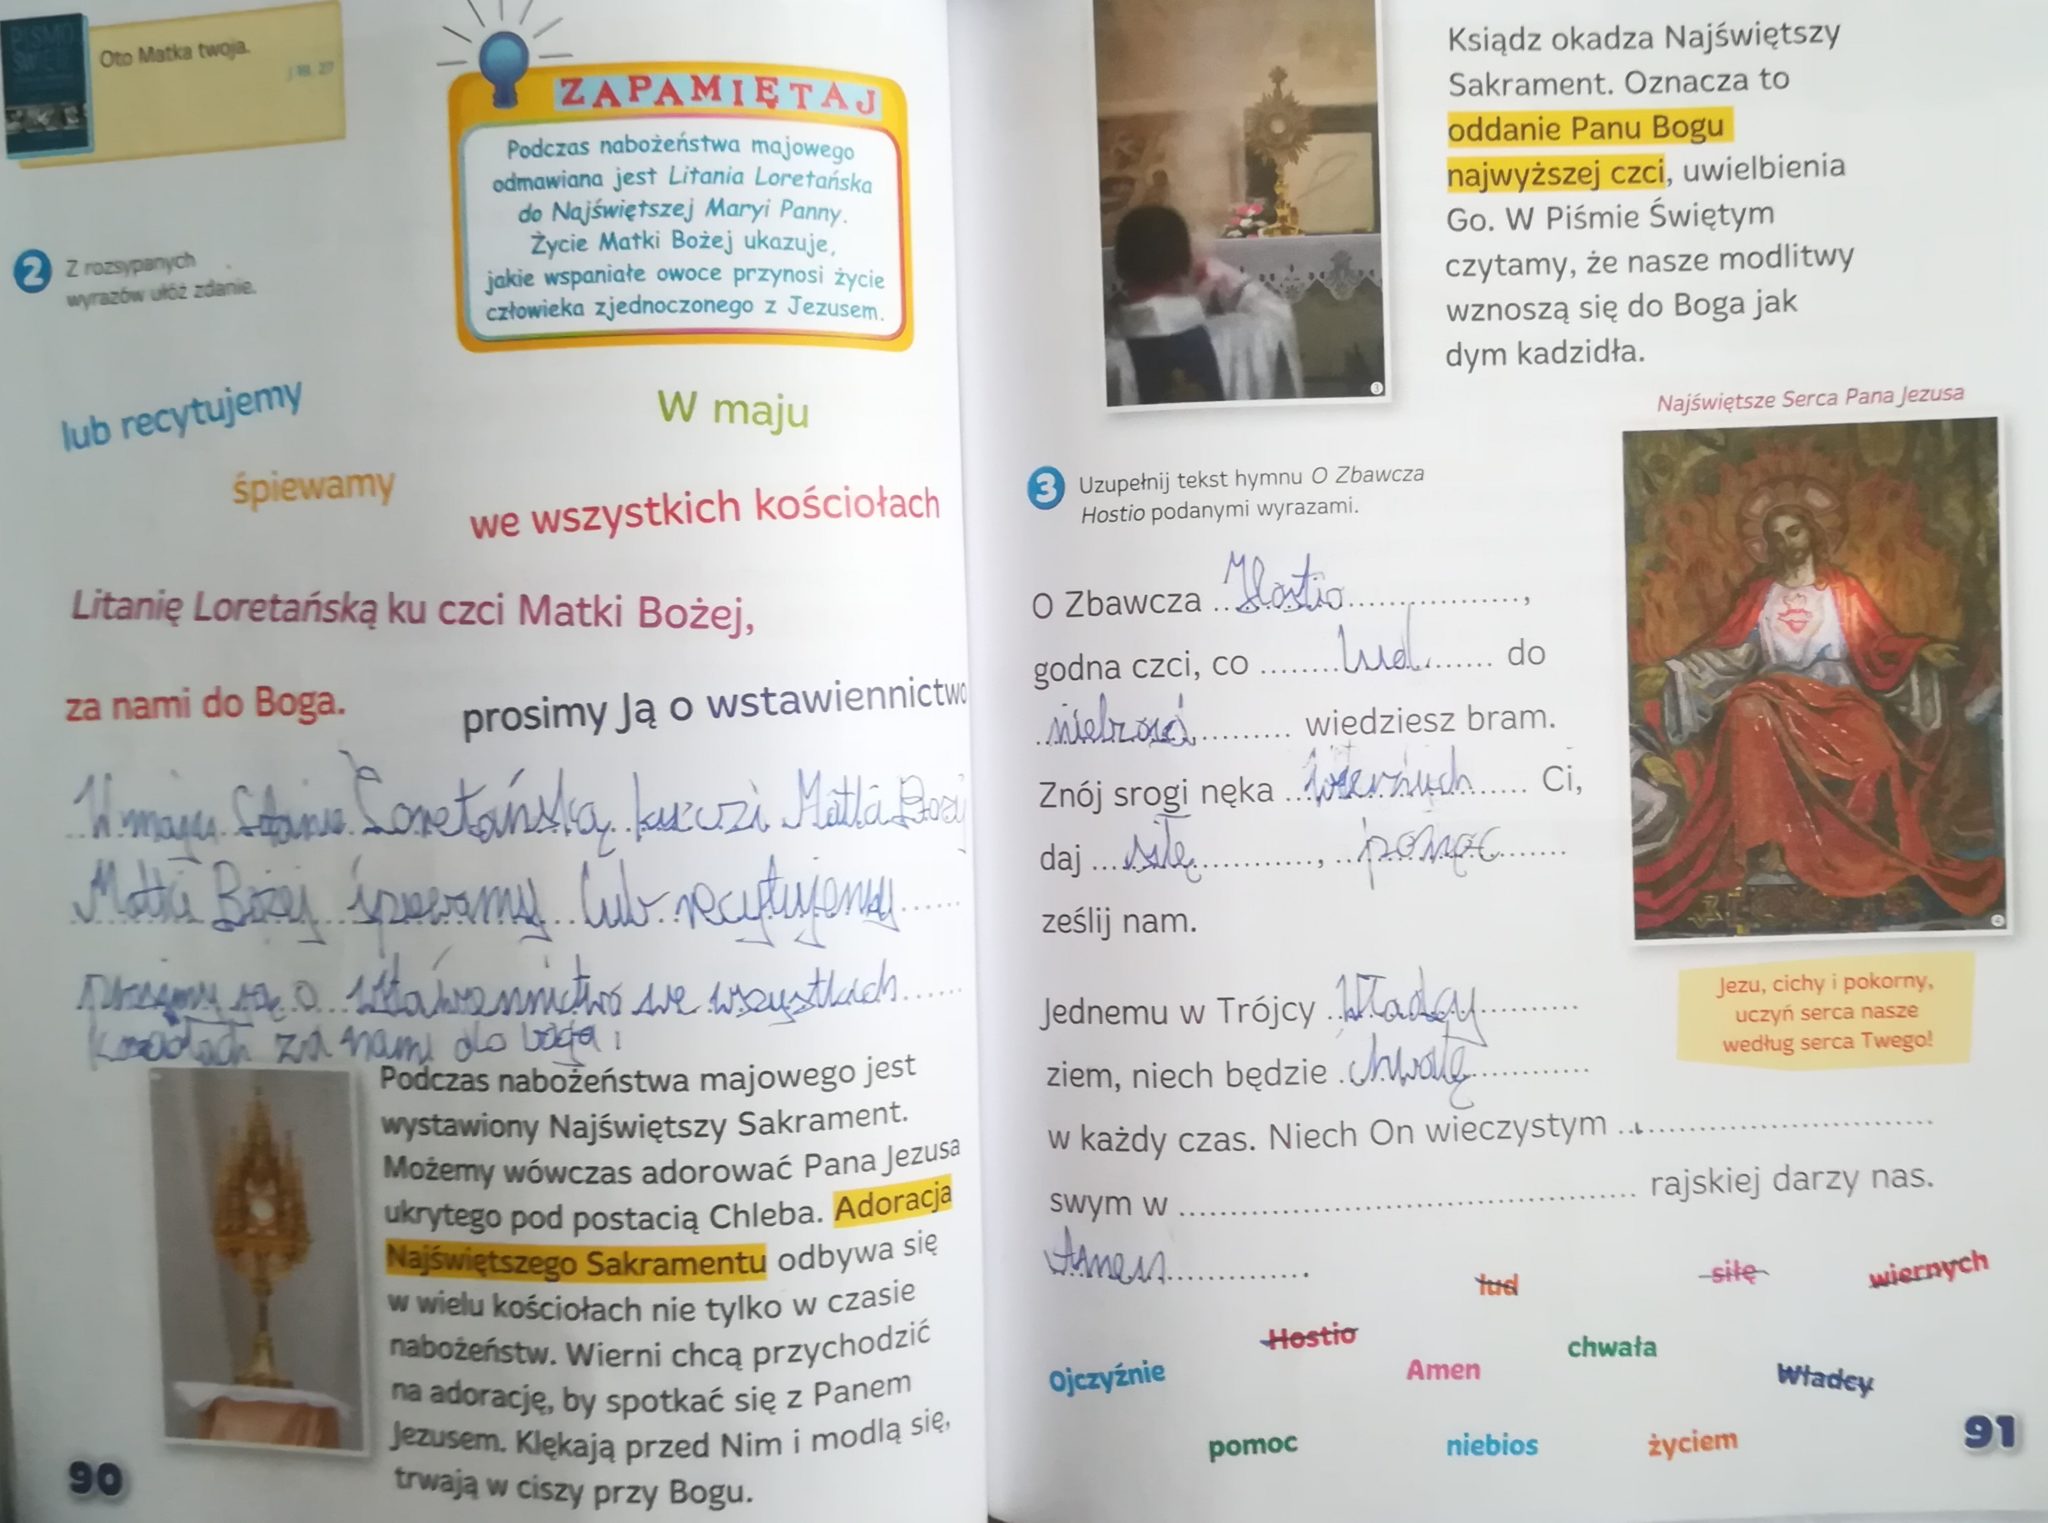 PISMO
ŚWIĘTE
Oto Matka twoja.
J 19, 27
ZAPAMIĘTAJ
Podczas nabożeństwa majowego
odmawiana jest Litania Loretańska
do Najświętszej Maryi Panny.
Życie Matki Bożej ukazuje,
jakie wspaniałe owoce przynosi życie
człowieka zjednoczonego z Jezusem.
2 Z rozsypanych
wyrazów ułóż zdanie.
lub recytujemy
W maju
śpiewamy
we wszystkich kościołach
Litanię Loretańską ku czci Matki Bożej,
za nami do Boga.
prosimy Ją o wstawiennictwo
W maju Loretańską Matki
Matki Bożej śpiewamy lub recytujemy
o we
za nami do boga
Podczas nabożeństwa majowego jest
wystawiony Najświętszy Sakrament.
Możemy wówczas adorować Pana Jezusa
ukrytego pod postacią Chleba. Adoracja
Najświętszego Sakramentu odbywa się
w wielu kościołach nie tylko w czasie
nabożeństw. Wierni chcą przychodzić
na adorację, by spotkać się z Panem
Jezusem. Klękają przed Nim i modlą się,
trwają w ciszy przy Bogu.
90
Ksiądz okadza Najświętszy
Sakrament. Oznacza to
oddanie Panu Bogu
najwyższej czci, uwielbienia
Go. W Piśmie Świętym
czytamy, że nasze modlitwy
wznoszą się do Boga jak
dym kadzidła.
3
Najświętsze Serca Pana Jezusa
3 Uzupełnij tekst hymnu O Zbawcza
Hostio podanymi wyrazami.
O Zbawcza Hostio,
godna czci, co lud do
wiedziesz bram.
Znój srogi nęka Ci,
daj siłę, pomoc
ześlij nam.
Jednemu w Trójcy Władcy
ziem, niech będzie chwałę
w każdy czas. Niech On wieczystym
swym w rajskiej darzy nas.
Amen
4
Jezu, cichy i pokorny,
uczyń serca nasze
według serca Twego!
lud siłę wiernych
Hostio chwała
Ojczyźnie Amen Władcy
pomoc niebios życiem
91